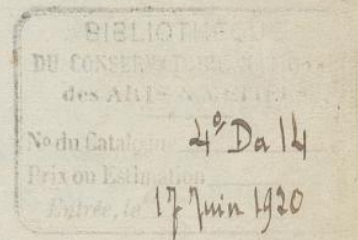 BIBLIOTHÈQUE
DU CONSERVATOIRE NATIONAL
des ARTS & MÉTIERS
No du Catalogue 4° Da 14
Prix ou Estimation
Entrée, le 17 Juin 1920